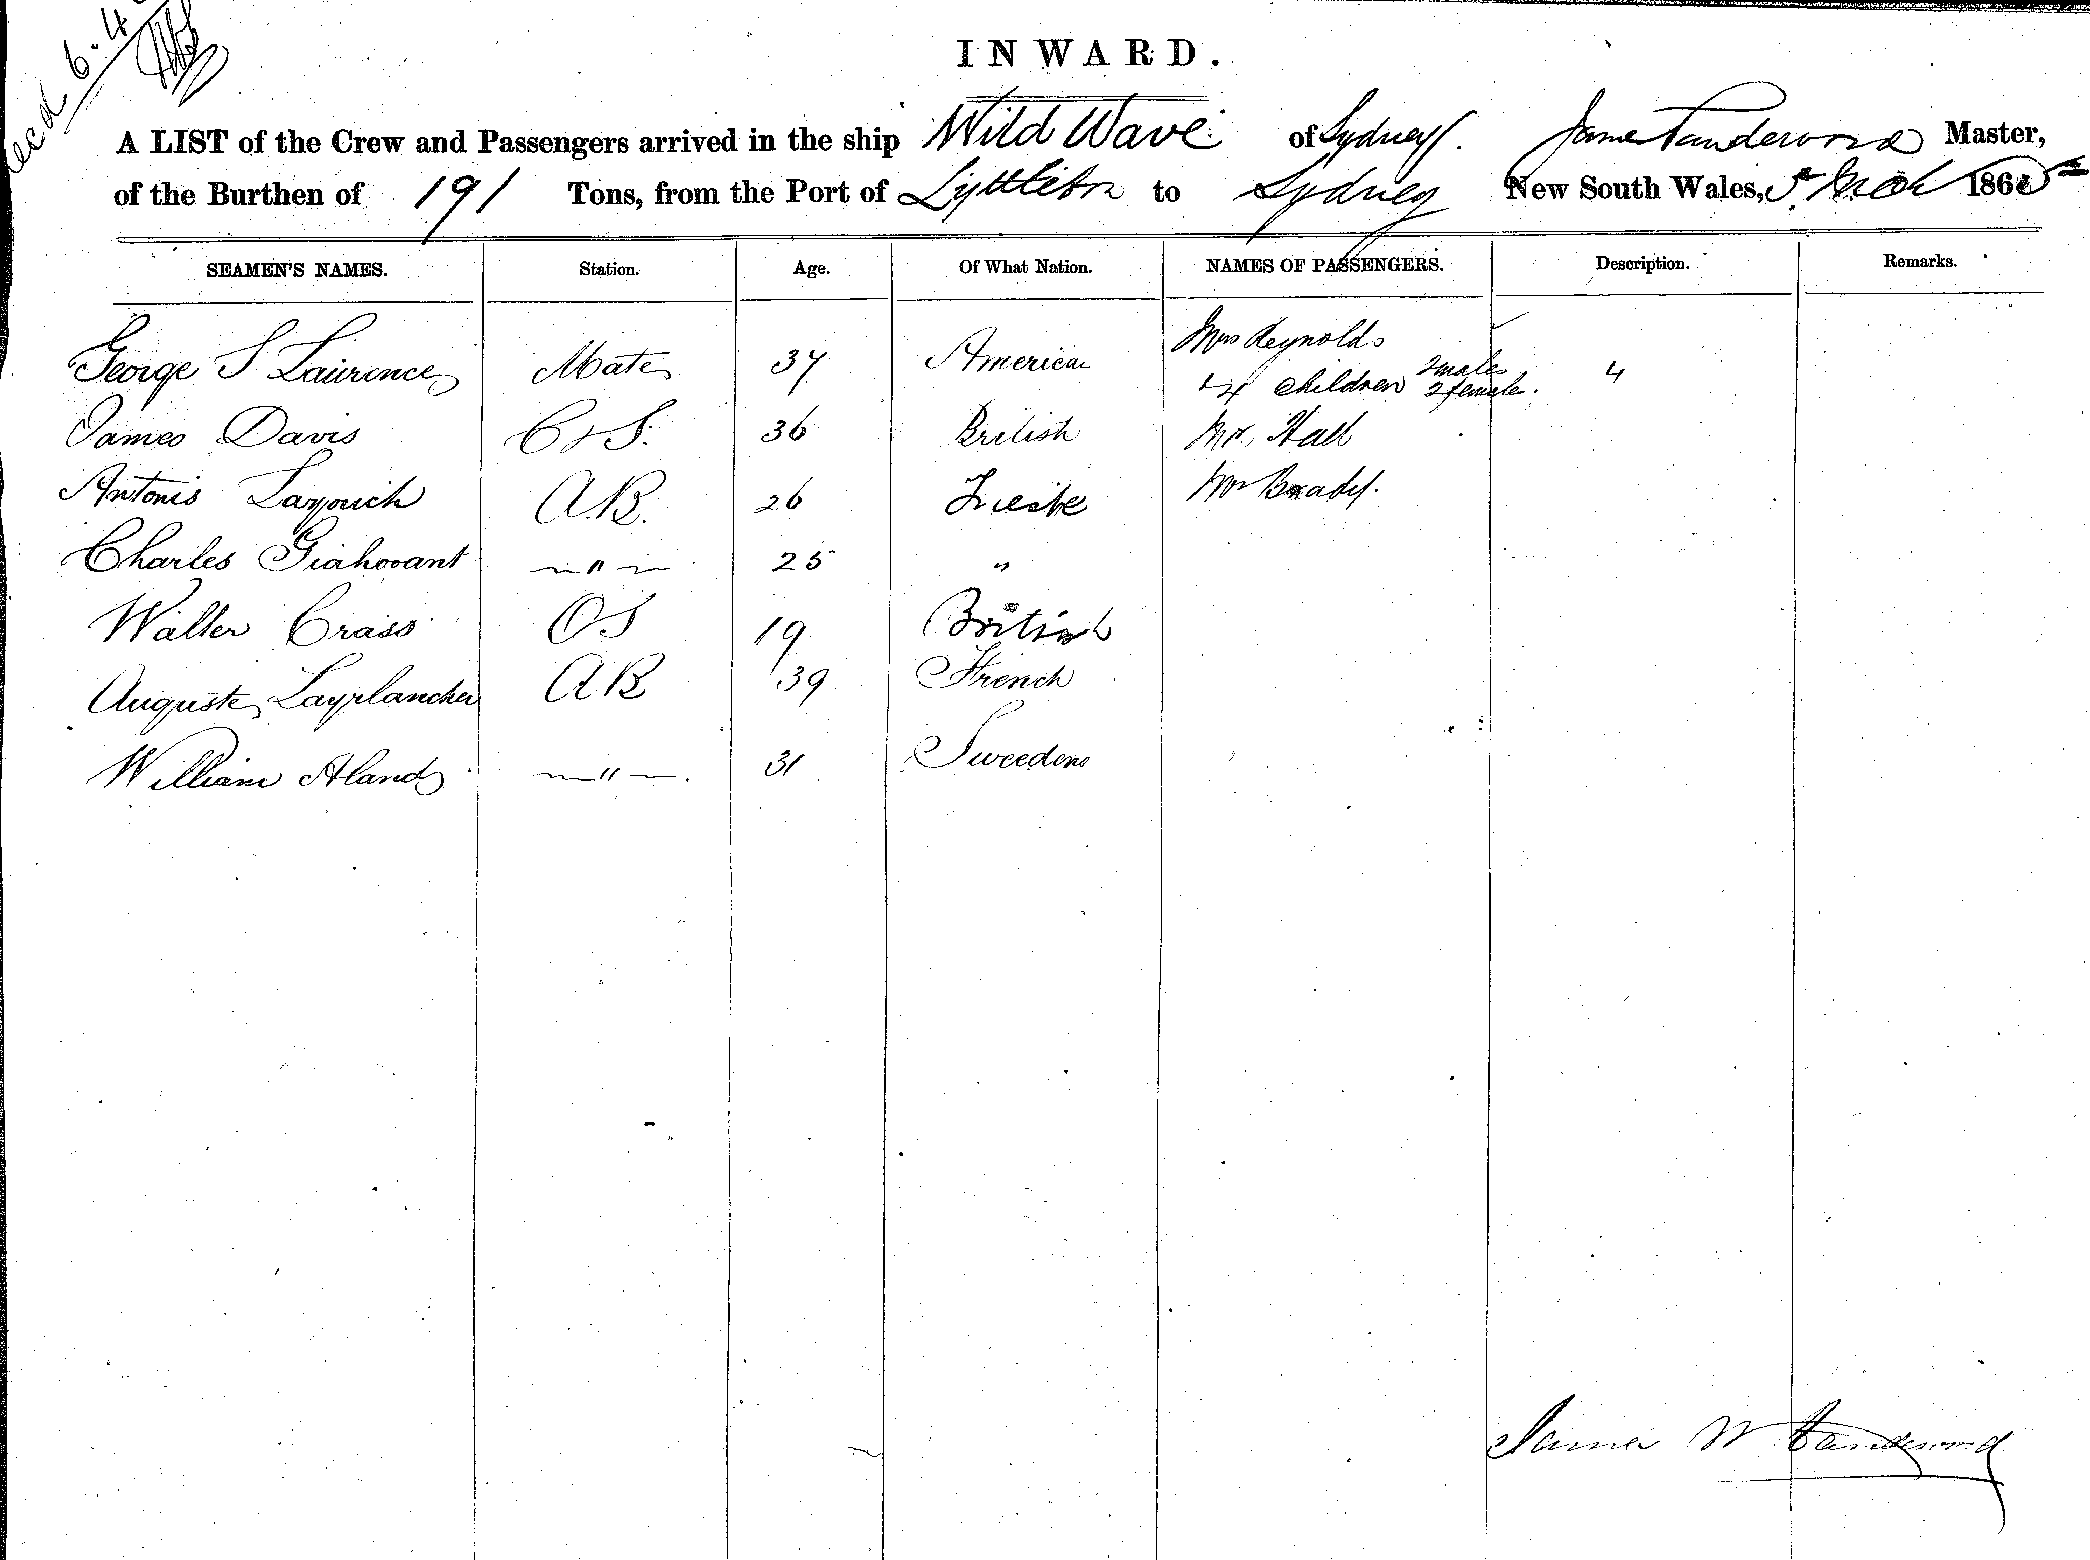 6.4
INWARD.
A LIST of the Crew and Passengers arrived in the ship Wild Wave of Sydney. James Vanderwood Master,
of the Burthen of 191 Tons, from the Port of Lyttleton to Sydney New South Wales, 1865
SEAMEN'S NAMES. Station. Age. Of What Nation. NAMES OF PASSENGERS. Description. Remarks.
George S Laurence Mate 37 America Mrs Reynolds
4 children 2 males 2 female. 4
James Davis C & S. 36 British Mr. Hall
Antonis A.B. 26 Trieste Brady.
Charles —"— 25 "
Walter Crass OS 19 British
Auguste AB 39 French
William Aland —"— 31 Sweedens
James W